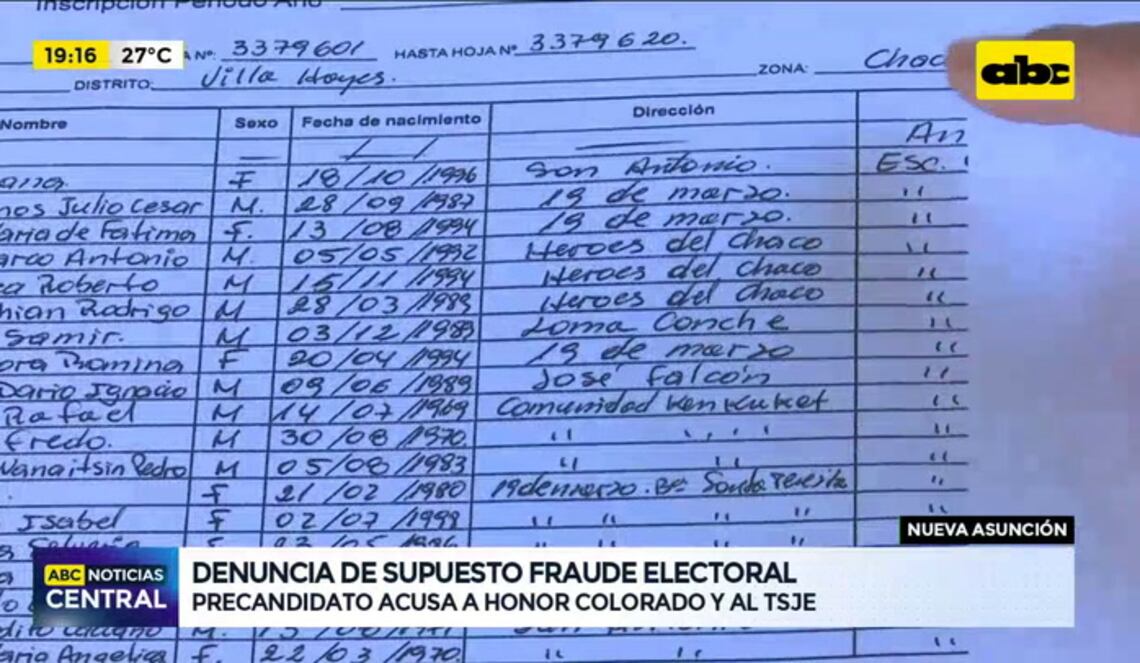 Inscripción Período Año
19:16 27°C
A Nº: 3379601 HASTA HOJA Nº 3379620.
DISTRITO: Villa Hayes. ZONA: Chac
abc
Nombre Sexo Fecha de nacimiento Dirección
An
F 18/10/1996 San Antonio. Esc.
Julio Cesar M. 28/09/1987 19 de marzo. "
aria de Fatima F. 13/08/1994 19 de marzo. "
arco Antonio M. 05/05/1992 Heroes del Chaco "
Roberto M 15/11/1994 Heroes del Chaco "
hian Rodrigo M 28/03/1989 Heroes del Chaco "
Samir. M 03/12/1989 Loma Conche "
ora Romina F 20/04/1994 19 de marzo "
Dario Ignacio M 09/06/1989 José Falcón "
Rafael M 14/07/1969 Comunidad Kenkuket "
fredo. M 30/08/1970 " " "
Pedro M 05/08/1983 " " "
F 21/02/1980 19 de marzo. Bº Santa Teresita "
Isabel F 02/07/1999 " " " " "
NUEVA ASUNCIÓN
ABC NOTICIAS
CENTRAL
DENUNCIA DE SUPUESTO FRAUDE ELECTORAL
PRECANDIDATO ACUSA A HONOR COLORADO Y AL TSJE
aria Angelica F. 22/03/1970 " " "